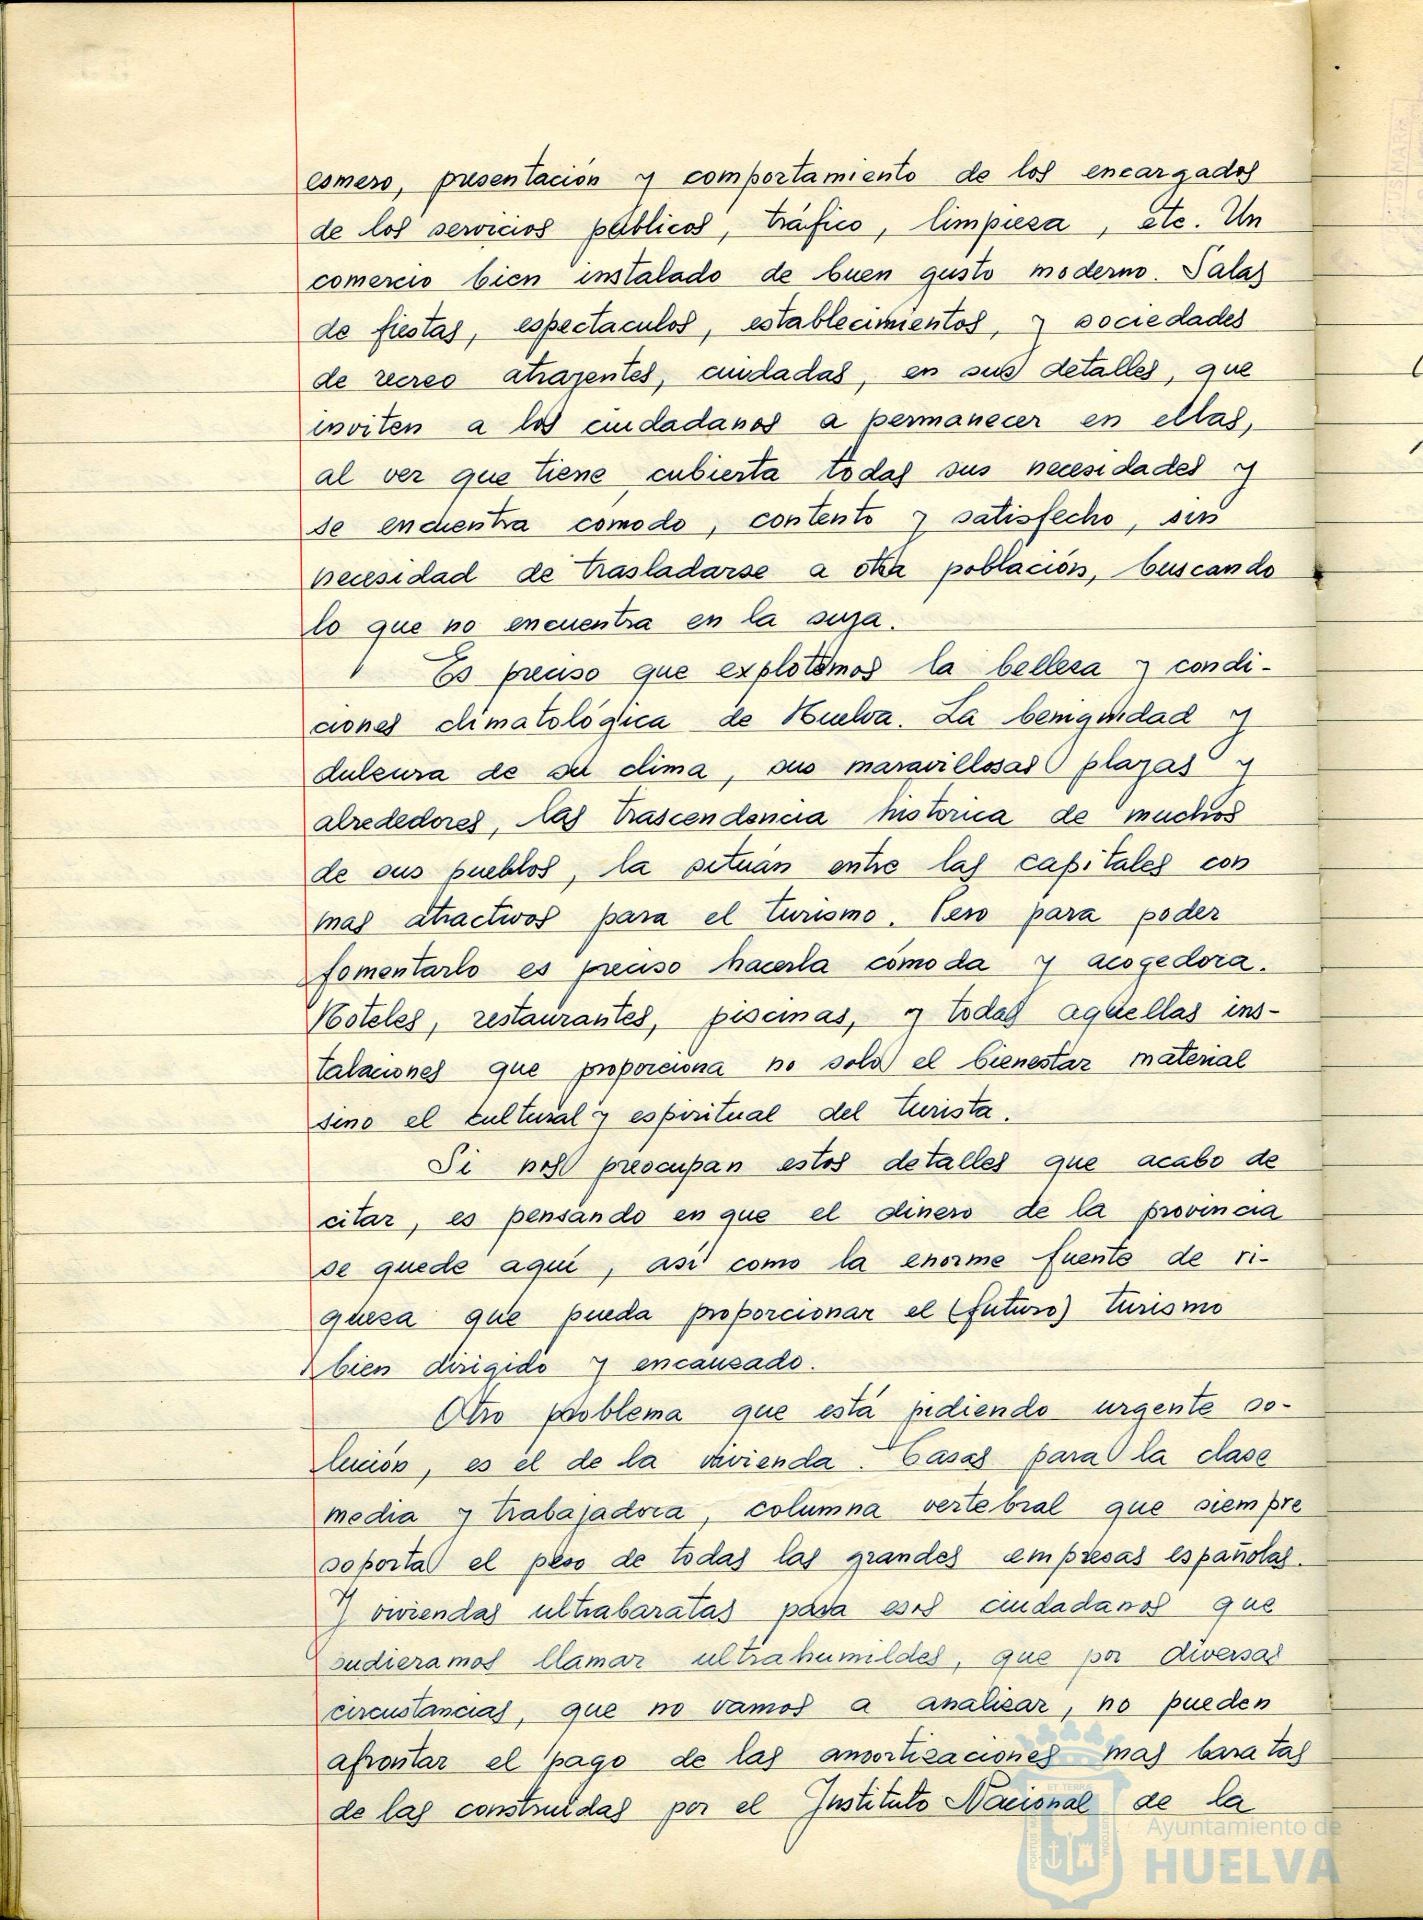 esmero, presentación y comportamiento de los encargados
de los servicios públicos, tráfico, limpieza, etc. Un
comercio bien instalado de buen gusto moderno. Salas
de fiestas, espectaculos, establecimientos, y sociedades
de recreo atrayentes, cuidadas, en sus detalles, que
inviten a los ciudadanos a permanecer en ellas,
al ver que tiene cubierta todas sus necesidades y
se encuentra comodo, contento y satisfecho, sin
necesidad de trasladarse a otra población, buscando
lo que no encuentra en la suya.
Es preciso que explotemos la belleza y condi-
ciones climatológica de Huelva. La benignidad y
dulzura de su clima, sus maravillosas playas y
alrededores, las trascendencia historica de muchos
de sus pueblos, la situán entre las capitales con
mas atractivos para el turismo. Pero para poder
fomentarlo es preciso hacerla cómoda y acogedora.
Hoteles, restaurantes, piscinas, y todas aquellas ins-
talaciones que proporciona no solo el bienestar material
sino el cultural y espiritual del turista.
Si nos preocupan estos detalles que acabo de
citar, es pensando en que el dinero de la provincia
se quede aquí, así como la enorme fuente de ri-
queza que pueda proporcionar el (futuro) turismo
bien dirigido y encauzado.
Otro problema que está pidiendo urgente so-
lución, es el de la vivienda. Casas para la clase
media y trabajadora, columna vertebral que siempre
soporta el peso de todas las grandes empresas españolas.
Y viviendas ultrabaratas para esos ciudadanos que
pudieramos llamar ultrahumildes, que por diversas
circustancias, que no vamos a analizar, no pueden
afrontar el pago de las amortizaciones mas baratas
de las construidas por el Instituto Nacional de la
Ayuntamiento de
HUELVA